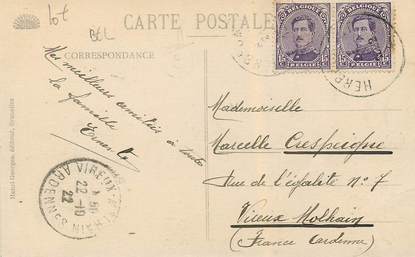 lot
BEL
CARTE POSTALE
CORRESPONDANCE
Mes meilleurs amitiés à toute
la famille
Ernest
BELGIQUE
BELGIE
15
15
BELGIQUE
BELGIE
15
15
HERB
Mademoiselle
Marcelle Crespigne
Rue de l'égalité n° 7
Vieux Molhain
(France Ardenne)
VIREUX-MOLHAIN
22-10
22
ARDENNES
Henri Georges, éditeur, Bruxelles